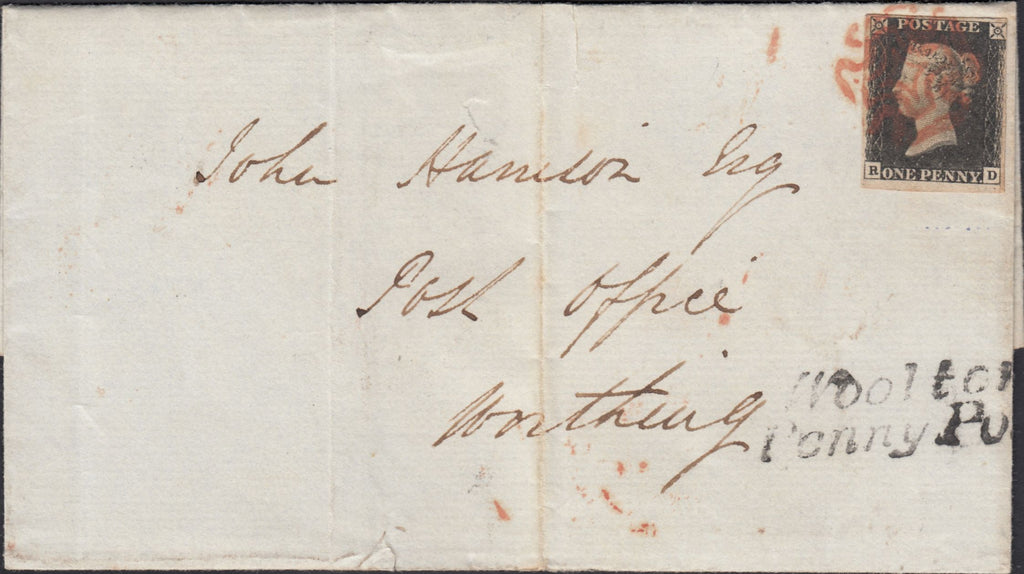 POSTAGE
R ONE PENNY. D
John Harrison Esq
Post Office
Worthing
Woolton
Penny Po